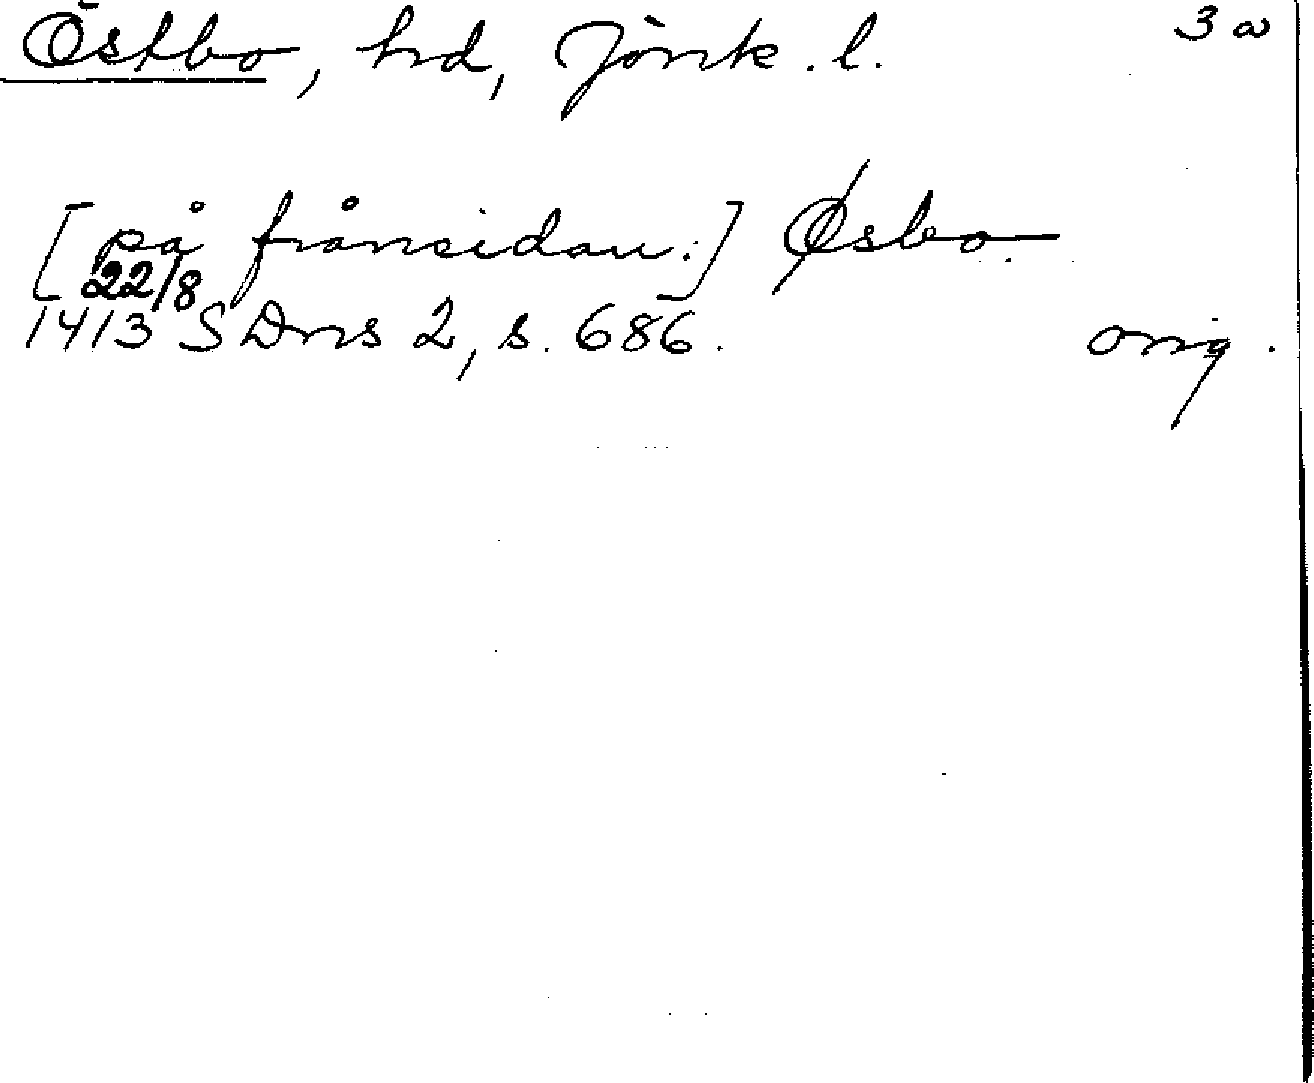 Östbo, hd, Jönk. l. 3 a
[på frånsidan:] Øsbo.
22/8
1413 SDns 2, s. 686. orig.